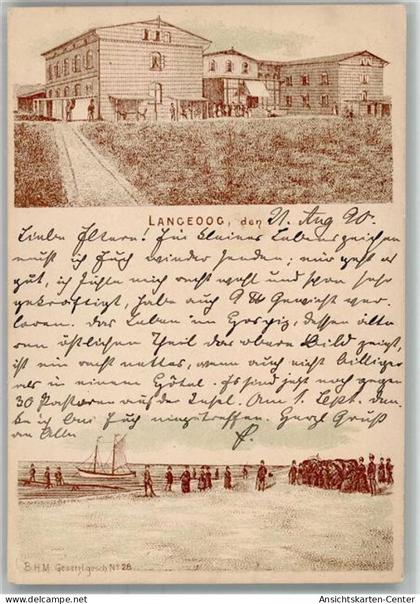 LANGEOOG, den 21. Aug 90.
Liebe Eltern! Ein kleines Lebenszeichen
muß ich Euch wieder senden; mir geht es
gut, ich fühle mich recht wohl und schon sehr
gekräftigt, habe auch 9 ℔ Gewicht ver-
loren. Das Leben im Hospiz, dessen älte-
ren östlichen Theil das obere Bild zeigt,
ist ein recht nettes, wenn auch nicht billiger
als in einem Hôtel. Es sind jetzt noch gegen
30 Pastoren auf der Insel. Am 1. Sept. den-
ke ich bei Euch einzutreffen. Herzl Gruß
an Alle
B.H.M. Gesetzl. gesch. No 28
Ansichtskarten-Center